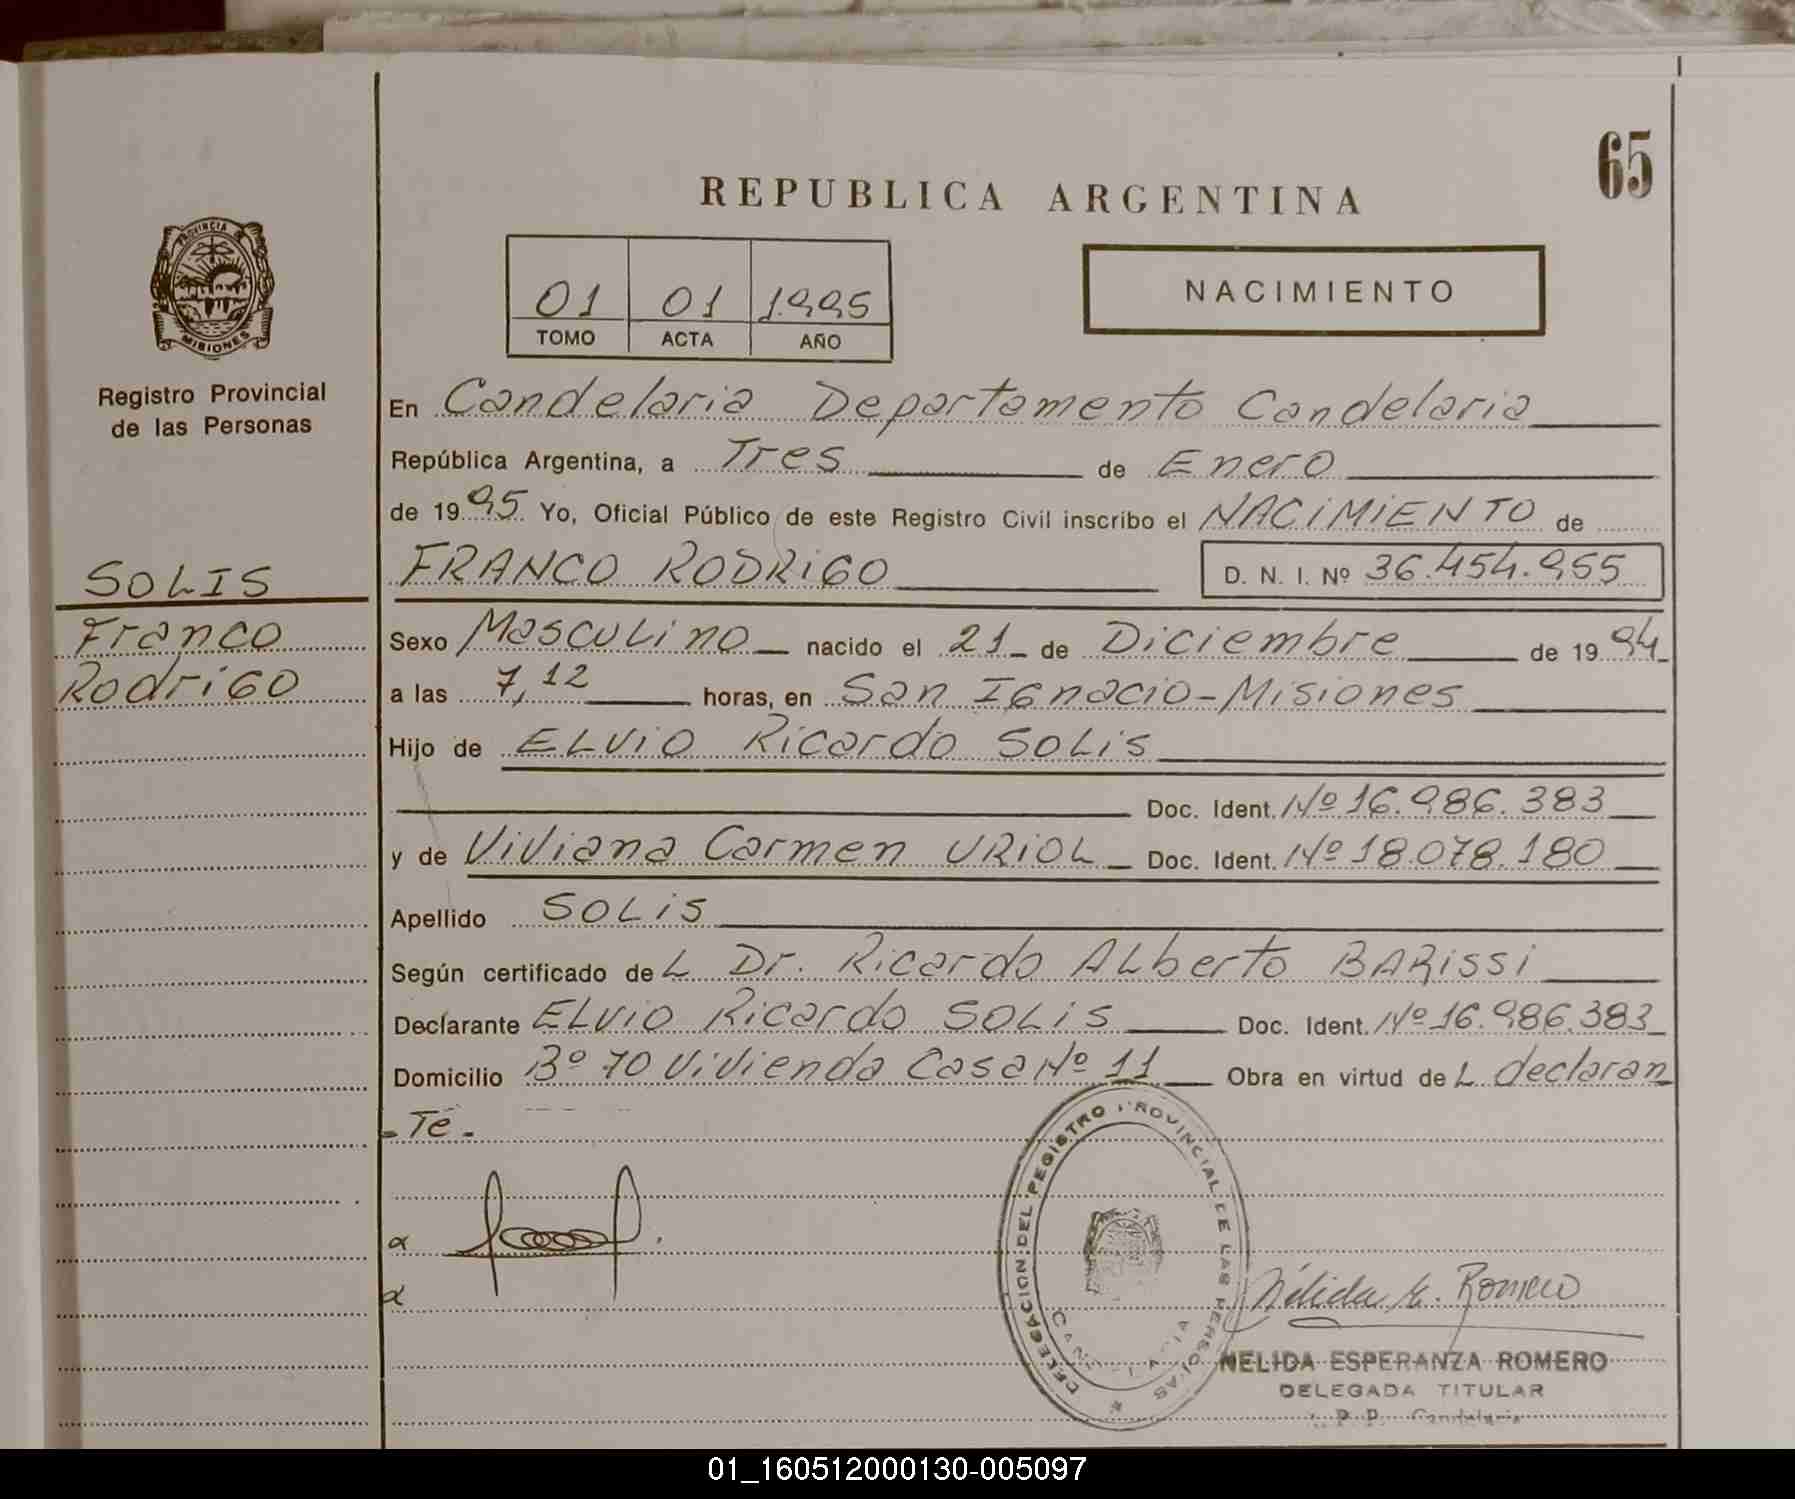 65
REPUBLICA ARGENTINA
PROVINCIA DE
MISIONES
01 01 1.995
TOMO ACTA AÑO
NACIMIENTO
Registro Provincial
de las Personas
SOLIS
Franco
Rodrigo
En Candelaria Departamento Candelaria
República Argentina, a Tres de Enero
de 1995 Yo, Oficial Público de este Registro Civil inscribo el NACIMIENTO de
FRANCO RODRIGO D. N. I. Nº 36.454.955
Sexo Masculino nacido el 21 de Diciembre de 1994
a las 7,12 horas, en San Ignacio-Misiones
Hijo de ELVIO Ricardo SOLIS
Doc. Ident. Nº 16.986.383
y de Viviana Carmen URIOL Doc. Ident. Nº 18.078.180
Apellido SOLIS
Según certificado del Dr. Ricardo Alberto BARISSI
Declarante ELVIO Ricardo SOLIS Doc. Ident. Nº 16.986.383
Domicilio Bº 70 Vivienda Casa Nº 11 Obra en virtud del declaran
-Te-
DELEGACION DEL REGISTRO PROVINCIAL DE LAS PERSONAS
CANDELARIA
Nélida E. Romero
NELIDA ESPERANZA ROMERO
DELEGADA TITULAR
Candelaria
01_160512000130-005097